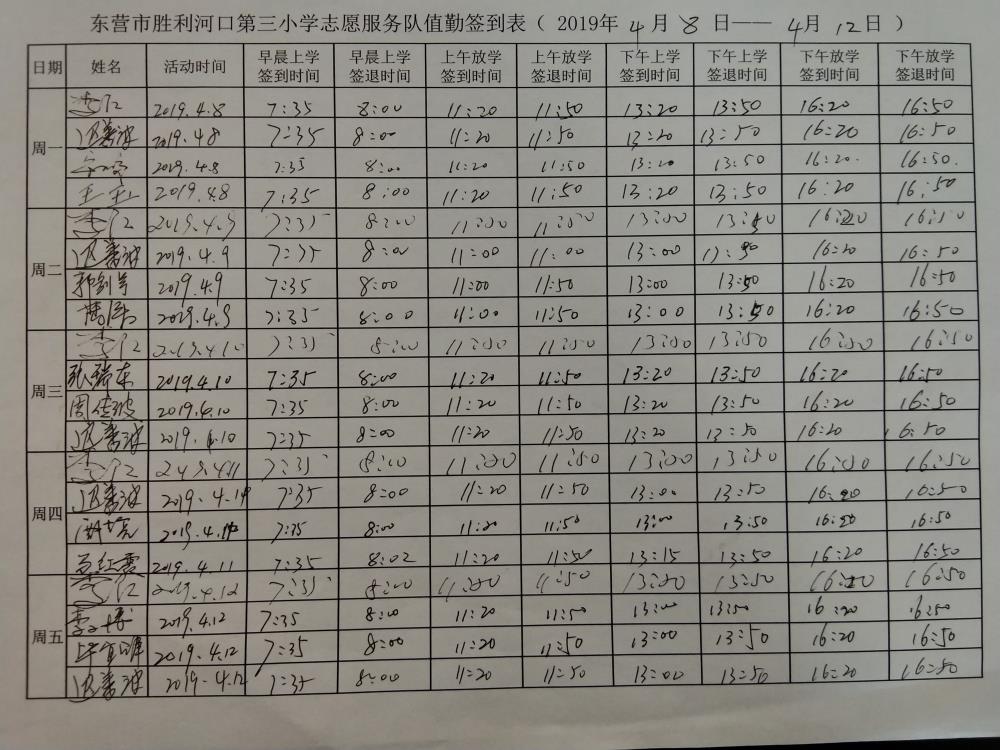 东营市胜利河口第三小学志愿服务队值勤签到表（ 2019年 4 月 8 日—— 4月 12日 ）
日期 姓名 活动时间 早晨上学签到时间 早晨上学签退时间 上午放学签到时间 上午放学签退时间 下午上学签到时间 下午上学签退时间 下午放学签到时间 下午放学签退时间
周一 2019.4.8 7:35 8:00 11:20 11:50 13:20 13:50 16:20 16:50
2019.4.8 7:35 8:00 11:20 11:50 13:20 13:50 16:20 16:50
2019.4.8 7:35 8:00 11:20 11:50 13:20 13:50 16:20. 16:50.
2019.4.8 7:35 8:00 11:20 11:50 13:20 13:50 16:20 16:50
周二 2019.4.9 7:35 8:00 11:00 11:50 13:00 13:50 16:20 16:50
2019.4.9 7:35 8:00 11:00 11:00 13:00 13:50 16:20 16:50
2019.4.9 7:35 8:00 11:00 11:50 13:00 13:50 16:20 16:50
2019.4.9 7:35 8:00 11:00 11:50 13:00 13:50 16:20 16:50
周三 2019.4.10 7:35 8:00 11:50 13:50 16:50
张瑞东 2019.4.10 7:35 8:00 11:20 11:50 13:20 13:50 16:20 16:50
2019.4.10 7:35 8:00 11:20 11:50 13:20 13:50 16:20 16:50
2019.4.10 7:35 8:00 11:20 11:50 13:20 13:50 16:20 16:50
周四 7:35 8:00 11:50 13:00 13:50 16:50
2019.4.11 7:35 8:00 11:20 11:50 13:00 13:50 16:20 16:50
2019.4.11 7:35 8:00 11:20 11:50 13:00 13:50 16:20 16:50
2019.4.11 7:35 8:02 11:20 11:50 13:15 13:50 16:20 16:50
周五 2019.4.12 7:35 8:00 11:50 13:50 16:20 16:50
2019.4.12 7:35 8:00 11:20 11:50 13:00 13:50 16:20 16:50
2019.4.12 7:35 8:00 11:20 11:50 13:00 13:50 16:20 16:50
2019.4.12 7:35 8:00 11:20 11:50 13:00 13:50 16:20 16:50